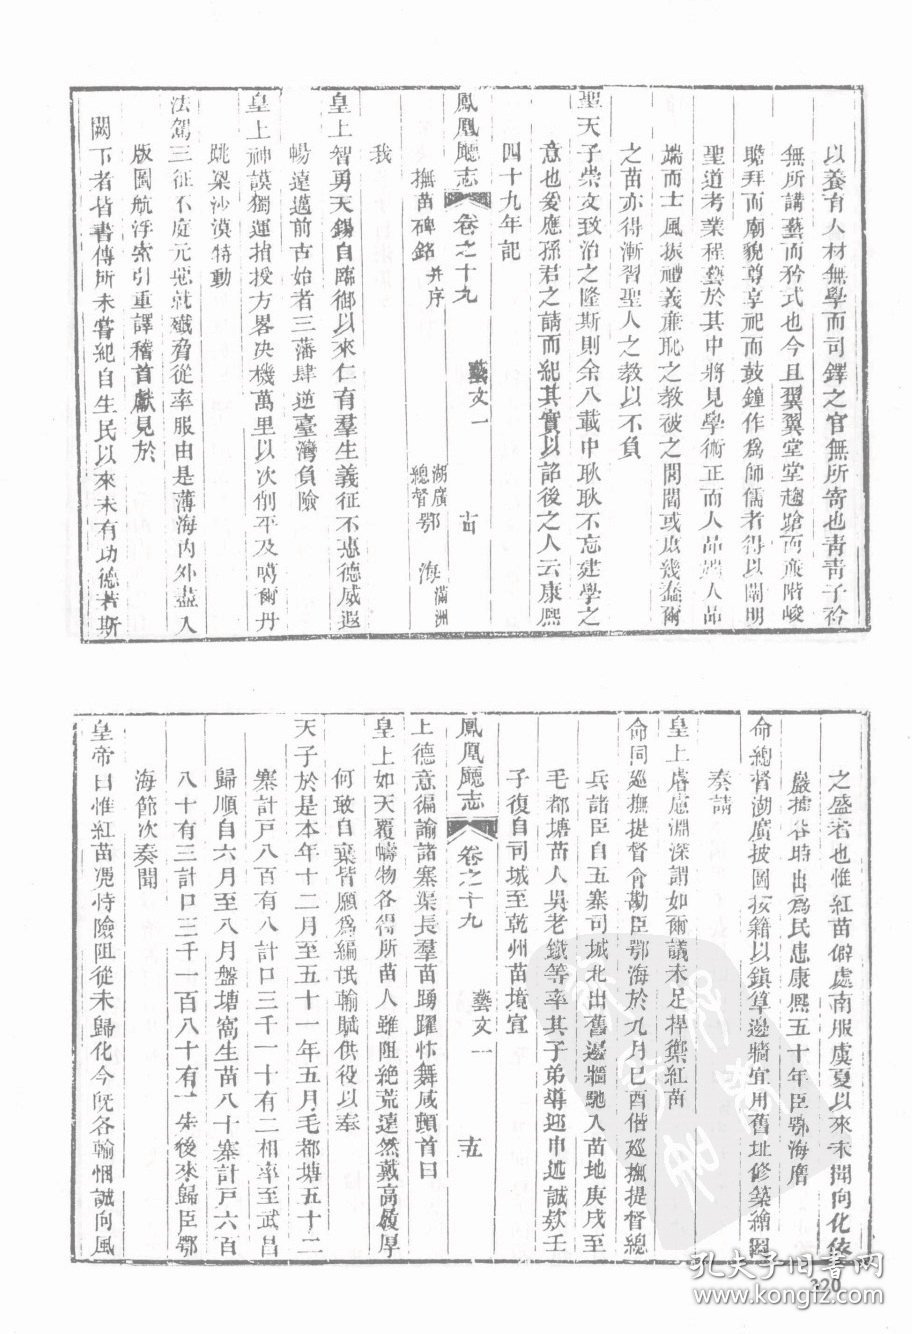 以養育人材無學而司鐸之官無所寄也靑靑子衿
無所講藝而矜式也今且翼翼堂堂趨蹌而廉階峻
瞻拜而廟貌尊享祀而鼓鐘作爲師儒者得以闡明
聖道考業程藝於其中將見學術正而人品端人品
端而士風振禮義廉恥之教被之閭閻或庶幾蠢爾
之苗亦得漸習聖人之教以不負
聖天子崇文致治之隆斯則余八載中耿耿不忘建學之
意也爰應孫君之請而紀其實以諮後之人云康熙
四十九年記
鳳凰廳志 卷之十九 藝文一 十四
撫苗碑銘 并序 湖廣總督鄂 海 滿洲
我
皇上智勇天錫自臨御以來仁有羣生義征不憓德威遐
暢遠邁前古始者三藩肆逆臺灣負險
皇上神謨獨運指授方畧决機萬里以次削平及噶爾丹
跳梁沙漠特動
法駕三征不庭元惡就殲脅從率服由是薄海內外盡入
版圖航浮索引重譯稽首獻見於
闕下者皆書傳所未嘗紀自生民以來未有功德若斯
之盛者也惟紅苗僻處南服虞夏以來未聞向化依
嚴據谷時出爲民患康熙五十年臣鄂海膺
命總督湖廣披圖按籍以鎮筸邊牆宜用舊址修築繪圖
奏請
皇上睿慮淵深謂如爾議未足捍禦紅苗
命同巡撫提督會勘臣鄂海於九月己酉偕巡撫提督總
兵諸臣自五寨司城北出舊邊牆馳入苗地庚戌至
毛都塘苗人吳老鐵等率其子弟導迎巾述誠欵壬
子復自司城至乾州苗境宣
鳳凰廳志 卷之十九 藝文一 十五
上德意徧諭諸寨渠長羣苗踴躍忭舞咸頓首曰
皇上如天覆幬物各得所苗人雖阻絶荒遠然戴高履厚
何敢自棄皆願爲編氓輸賦供役以奉
天子於是本年十二月至五十一年五月毛都塘五十二
寨計戸八百有八計口三千一十有二相率至武昌
歸順自六月至八月盤塘窩生苗八十寨計戸六百
八十有三計口三千一百八十有一先後來歸臣鄂
海節次奏聞
皇帝曰惟紅苗慿恃險阻從未歸化今旣各輸悃誠向風
孔夫子旧書网
320
www.kongfz.com